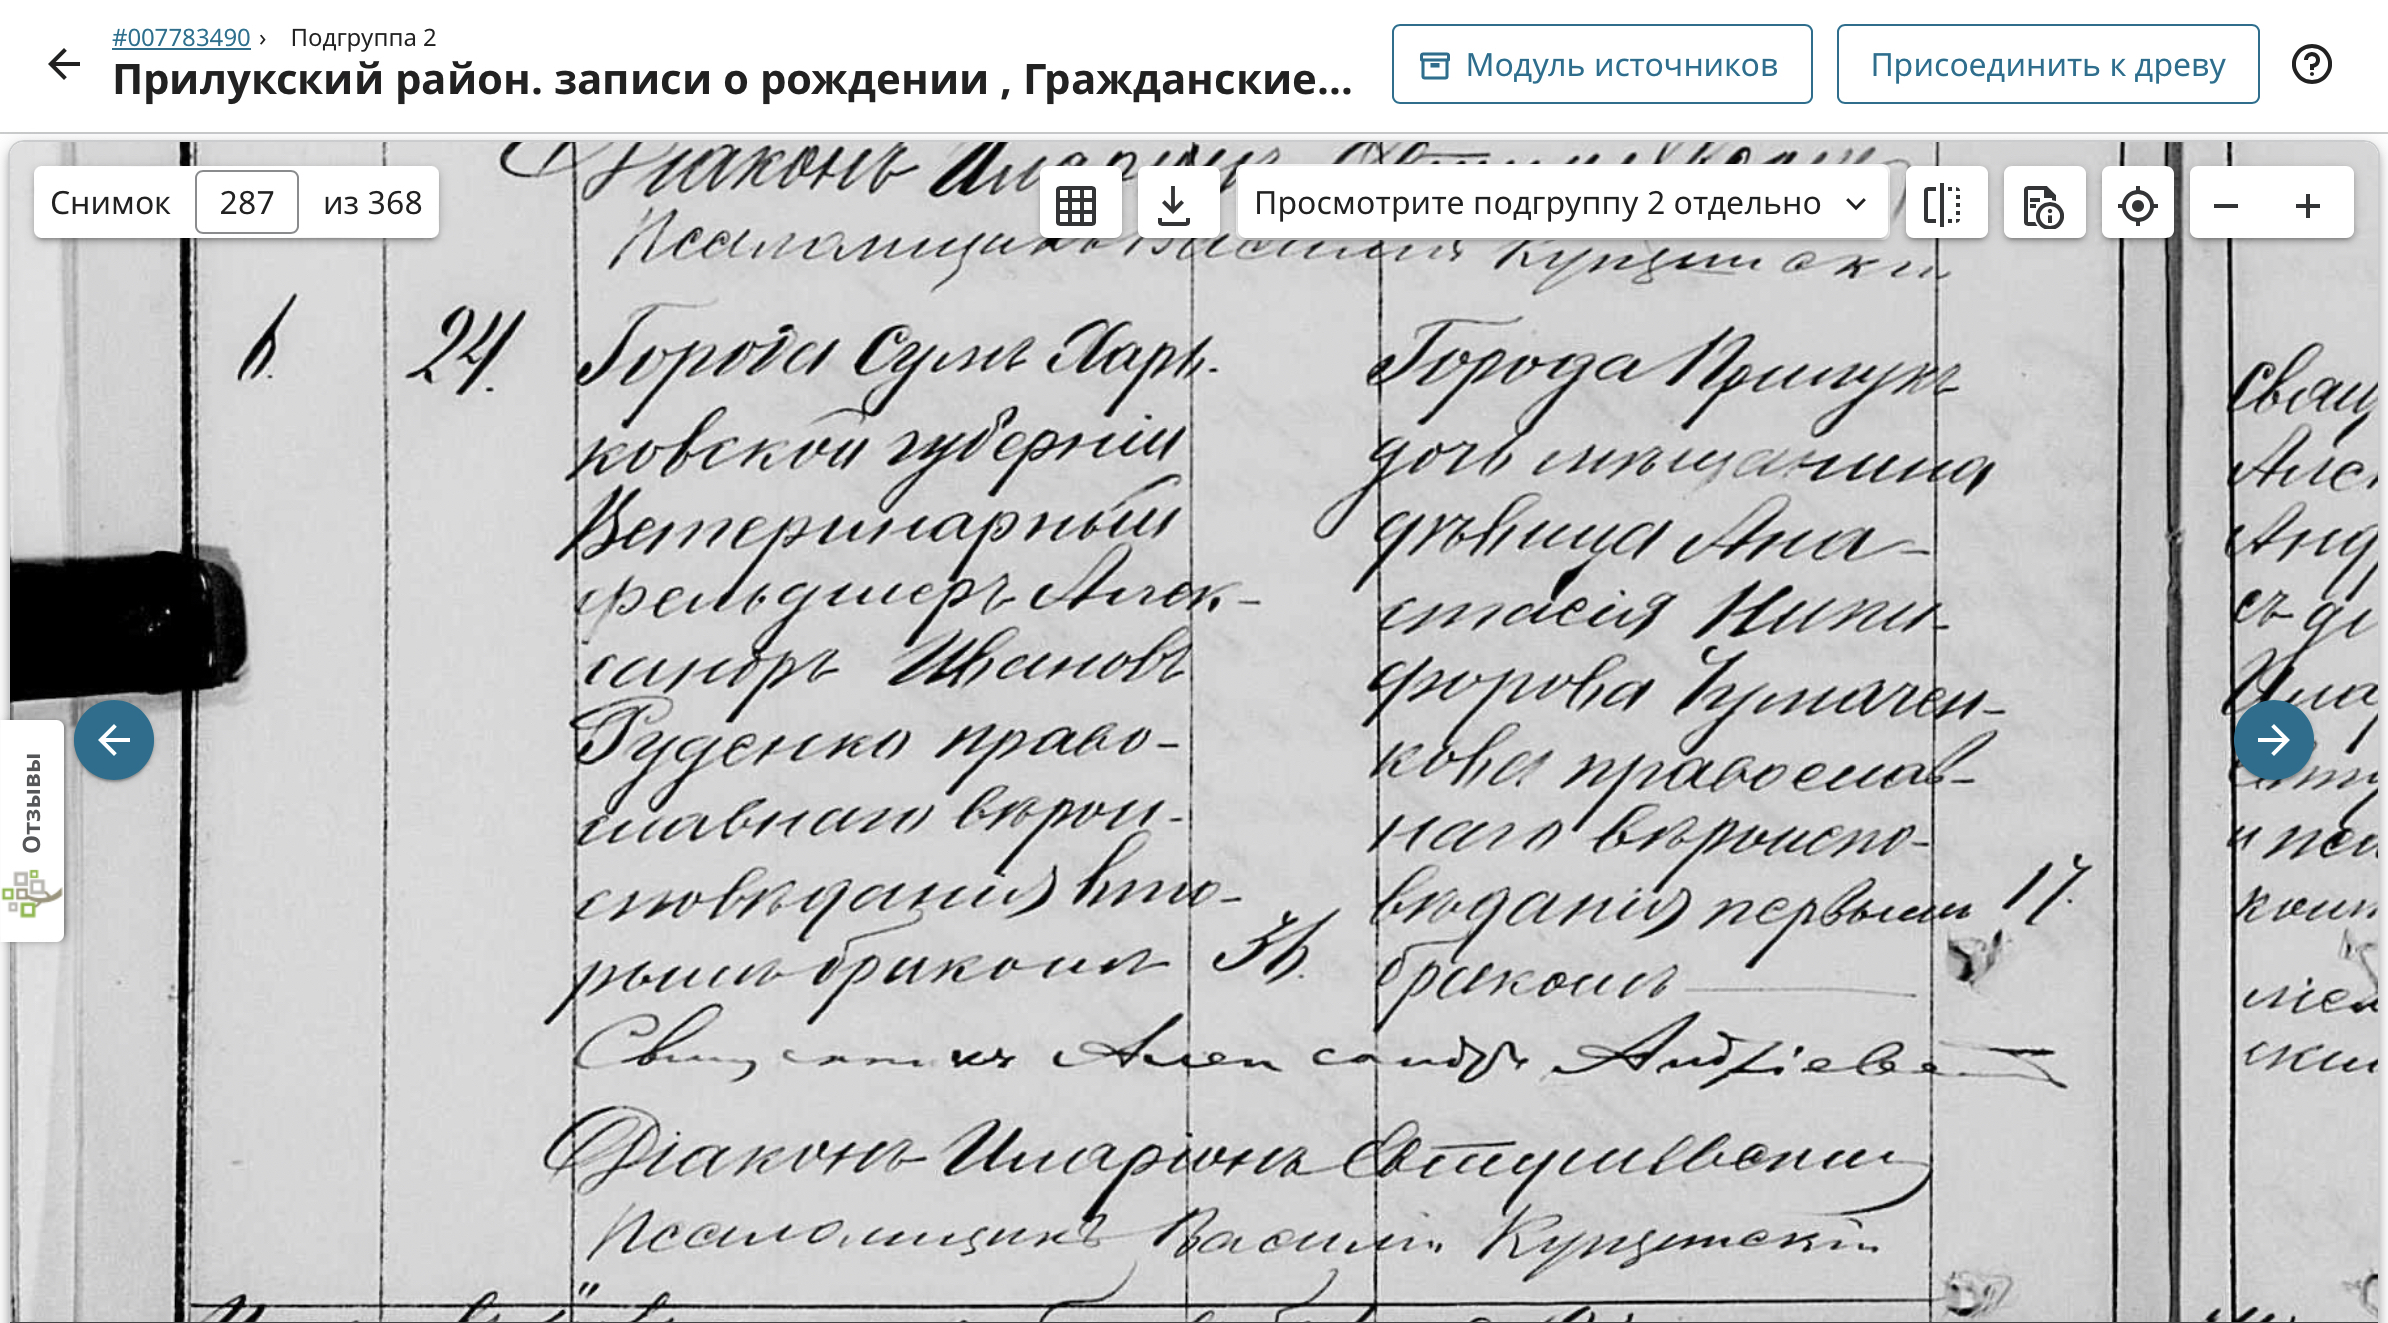 #007783490 › Подгруппа 2
Прилукский район. записи о рождении , Гражданские...
Модуль источников
Присоединить к древу
Снимок 287 из 368
Просмотрите подгруппу 2 отдельно
Отзывы
Діаконъ Иларіонъ
Псаломщикъ Василій
6. 24.
Города Сумъ Харь-
ковской губерніи
Ветеринарный
фельдшеръ Алек-
сандръ Ивановъ
Руденко право-
славнаго вѣрои-
сповѣданія вто-
рымъ бракомъ
36.
Города Прилукъ
дочь мѣщанина
дѣвица Ана-
стасія Ники-
форова Чумачен-
кова православ-
наго вѣроиспо-
вѣданія первымъ
бракомъ
17.
Священникъ Александръ Андріевскі
Діаконъ Иларіонъ
Псаломщикъ Василій
Свящ
Алек
Анд
съ ді
Ила
и пса